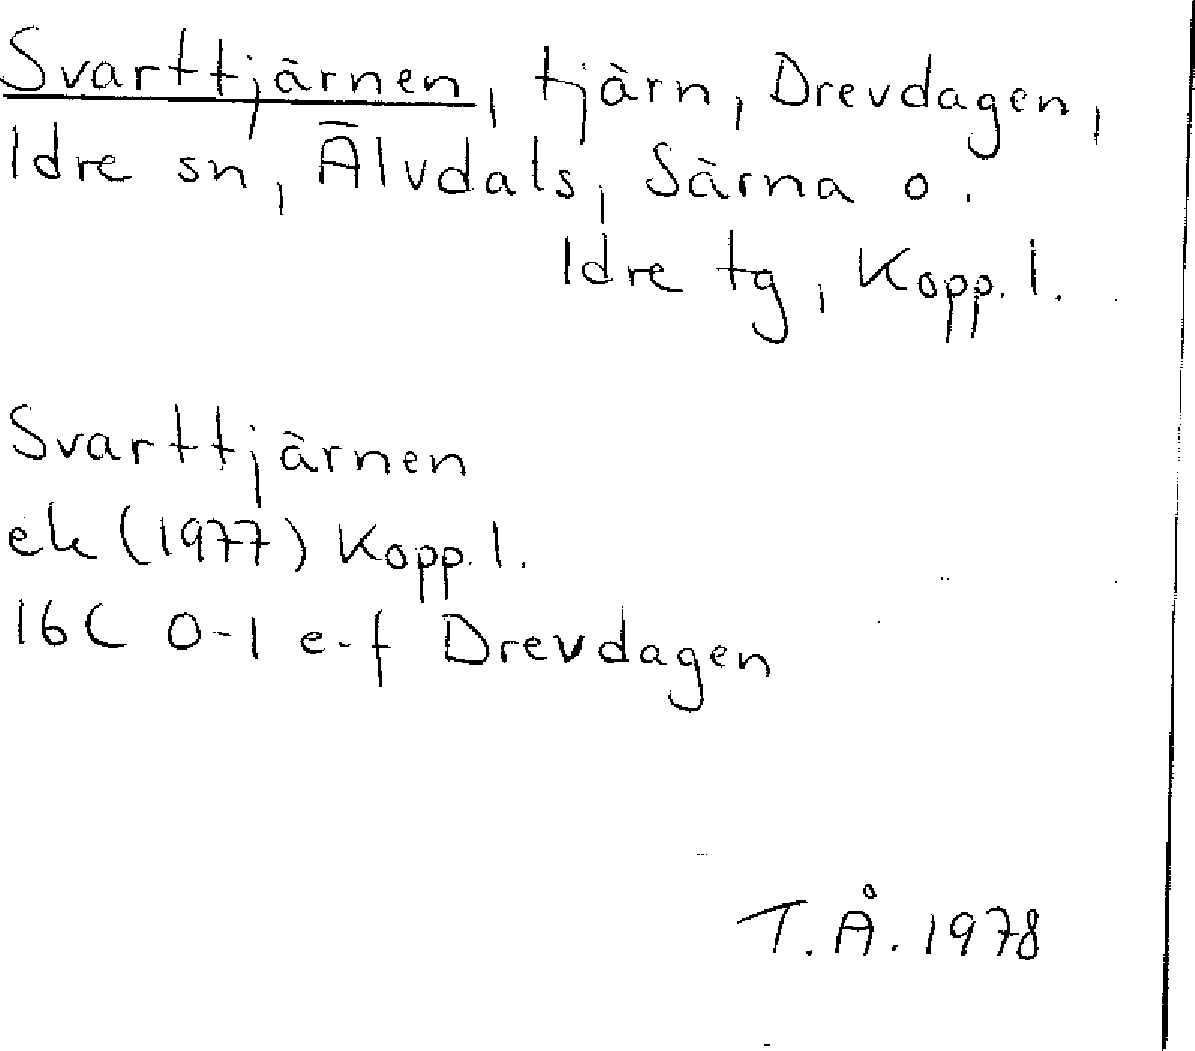 Svarttjärnen, tjärn, Drevdagen,
Idre sn, Älvdals, Särna o.
Idre tg, Kopp. l.
Svarttjärnen
ek (1977) Kopp. l.
16C 0-1 e-f Drevdagen
T. Å. 1978